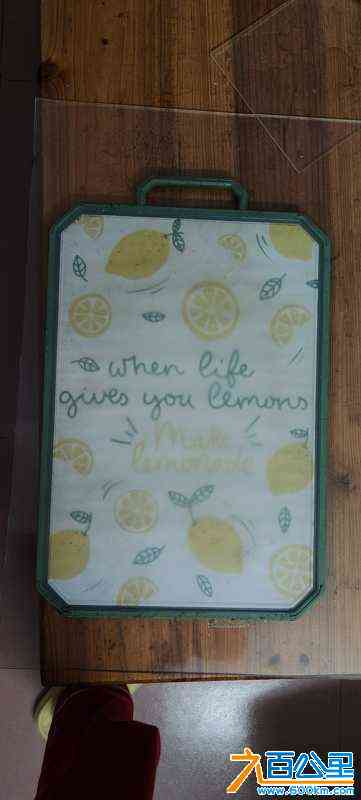 when life
gives you lemons
Make
lemonade
九百公里
www.900km.com